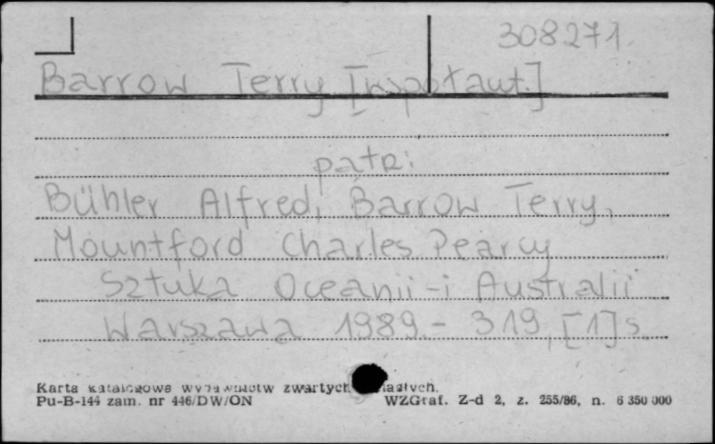 308271.
Barrow Terry [współaut.]
patrz:
Bühler Alfred, Barrow Terry,
Mountford Charles Pearcy
Sztuka Oceanii i Australii
Warszawa 1989.- 319, [1] s.
Karta katalogowa wydawnictw zwartych
Pu-B-144 zam. nr 446/DW/ON WZGraf. Z-d 2, z. 255/86, n. 6 350 000